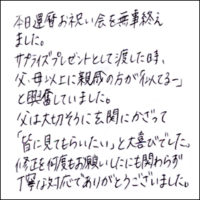 本日還暦お祝い会を無事終え
ました。
サプライズプレゼントとして渡した時、
父、母以上に親感の方が「似てるー」
と興奮していました。
父は大切そうに玄関にかざって
「皆に見てもらいたい」と大喜びでした。
修正を何度もお願いしたにも関わらず
丁寧な対応でありがとうございました。